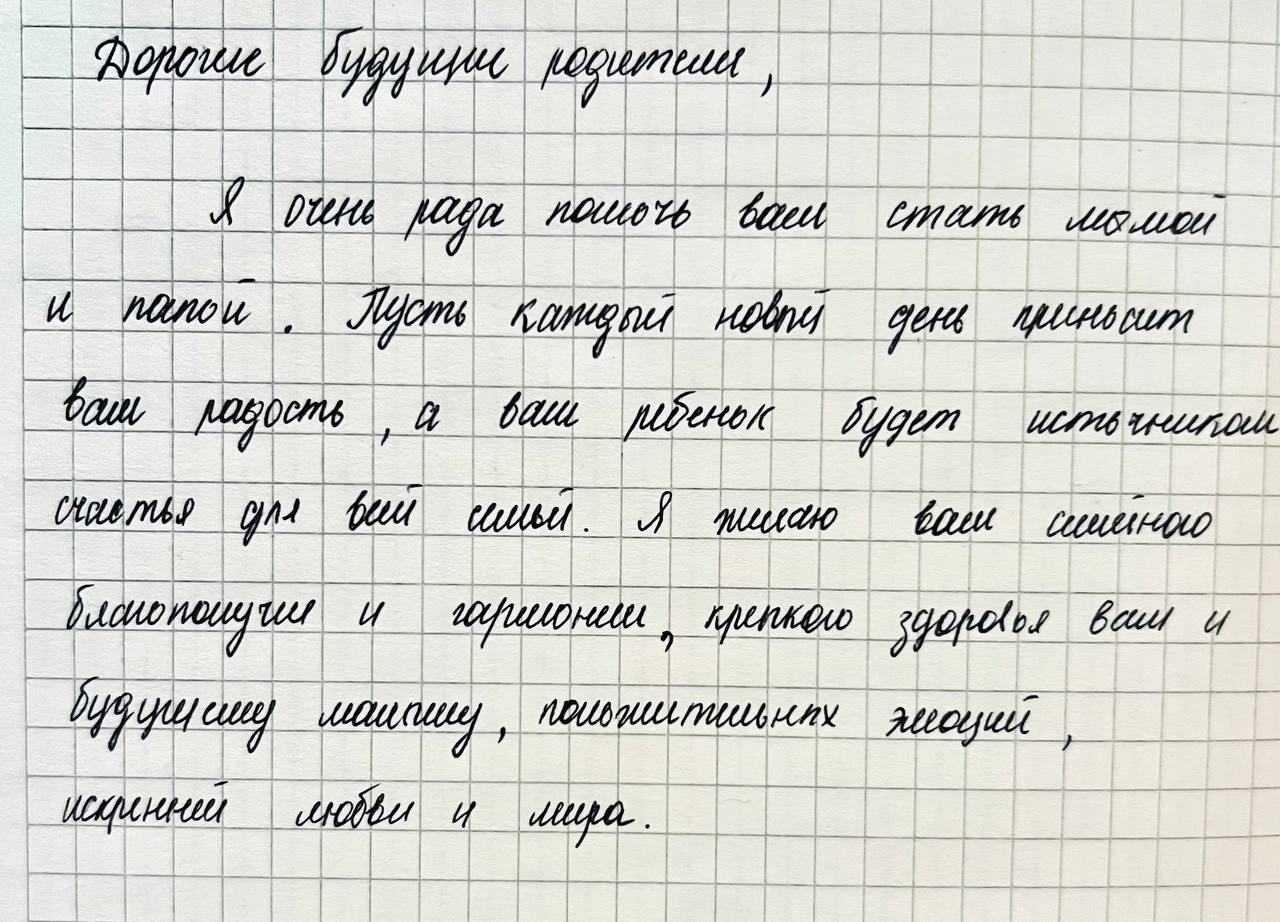 Дорогие будущие родители,
Я очень рада помочь вам стать мамой
и папой. Пусть каждый новый день приносит
вам радость, а ваш ребенок будет источником
счастья для всей семьи. Я желаю вам семейного
благополучия и гармонии, крепкого здоровья вам и
будущему малышу, положительных эмоций,
искренней любви и мира.